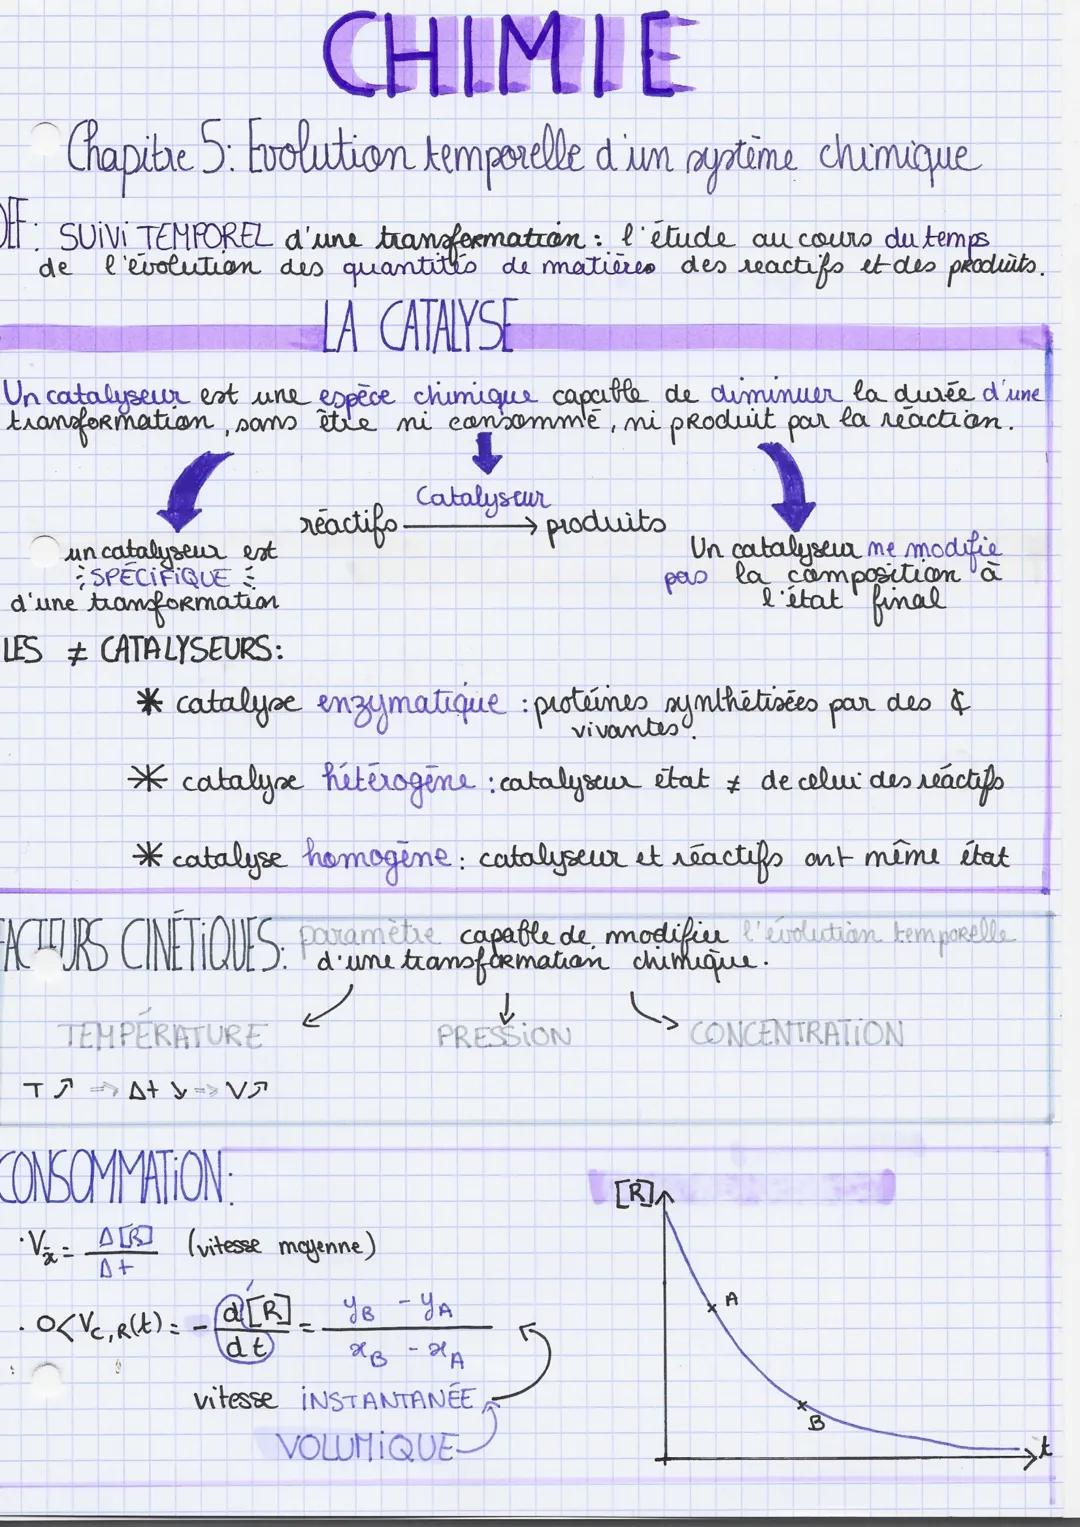 CHIMIE
Chapitre 5: Evolution temporelle d'un système chimique
DEF: SUIVI TEMPOREL d'une transformation : l'étude au cours du temps
de l'évolution des quantités de matières des reactifs et des produits.
LA CATALYSE
Un catalyseur est une espèce chimique capable de diminuer la durée d'une
transformation, sans être ni consommé, ni produit par la réaction.
Catalyseur
réactifs → produits
un catalyseur est
SPÉCIFIQUE
d'une transformation
Un catalyseur ne modifie
pas la composition à
l'état final
LES ≠ CATALYSEURS:
* catalyse enzymatique : protéines synthétisées par des ¢
vivantes.
* catalyse hétérogène : catalyseur état ≠ de celui des réactifs
* catalyse homogène : catalyseur et réactifs ont même état
FACTEURS CINÉTIQUES: paramètre capable de modifier l'évolution temporelle
d'une transformation chimique.
TEMPÉRATURE PRESSION CONCENTRATION
T ↗ ⇒ Δt ↘ ⇒ V↗
CONSOMMATION:
[R]
A
B
t
· V = Δ[R] / Δt (vitesse moyenne)
· 0<Vc,R(t) = - d[R] / dt = yB - yA / xB - xA
vitesse INSTANTANÉE
VOLUMIQUE